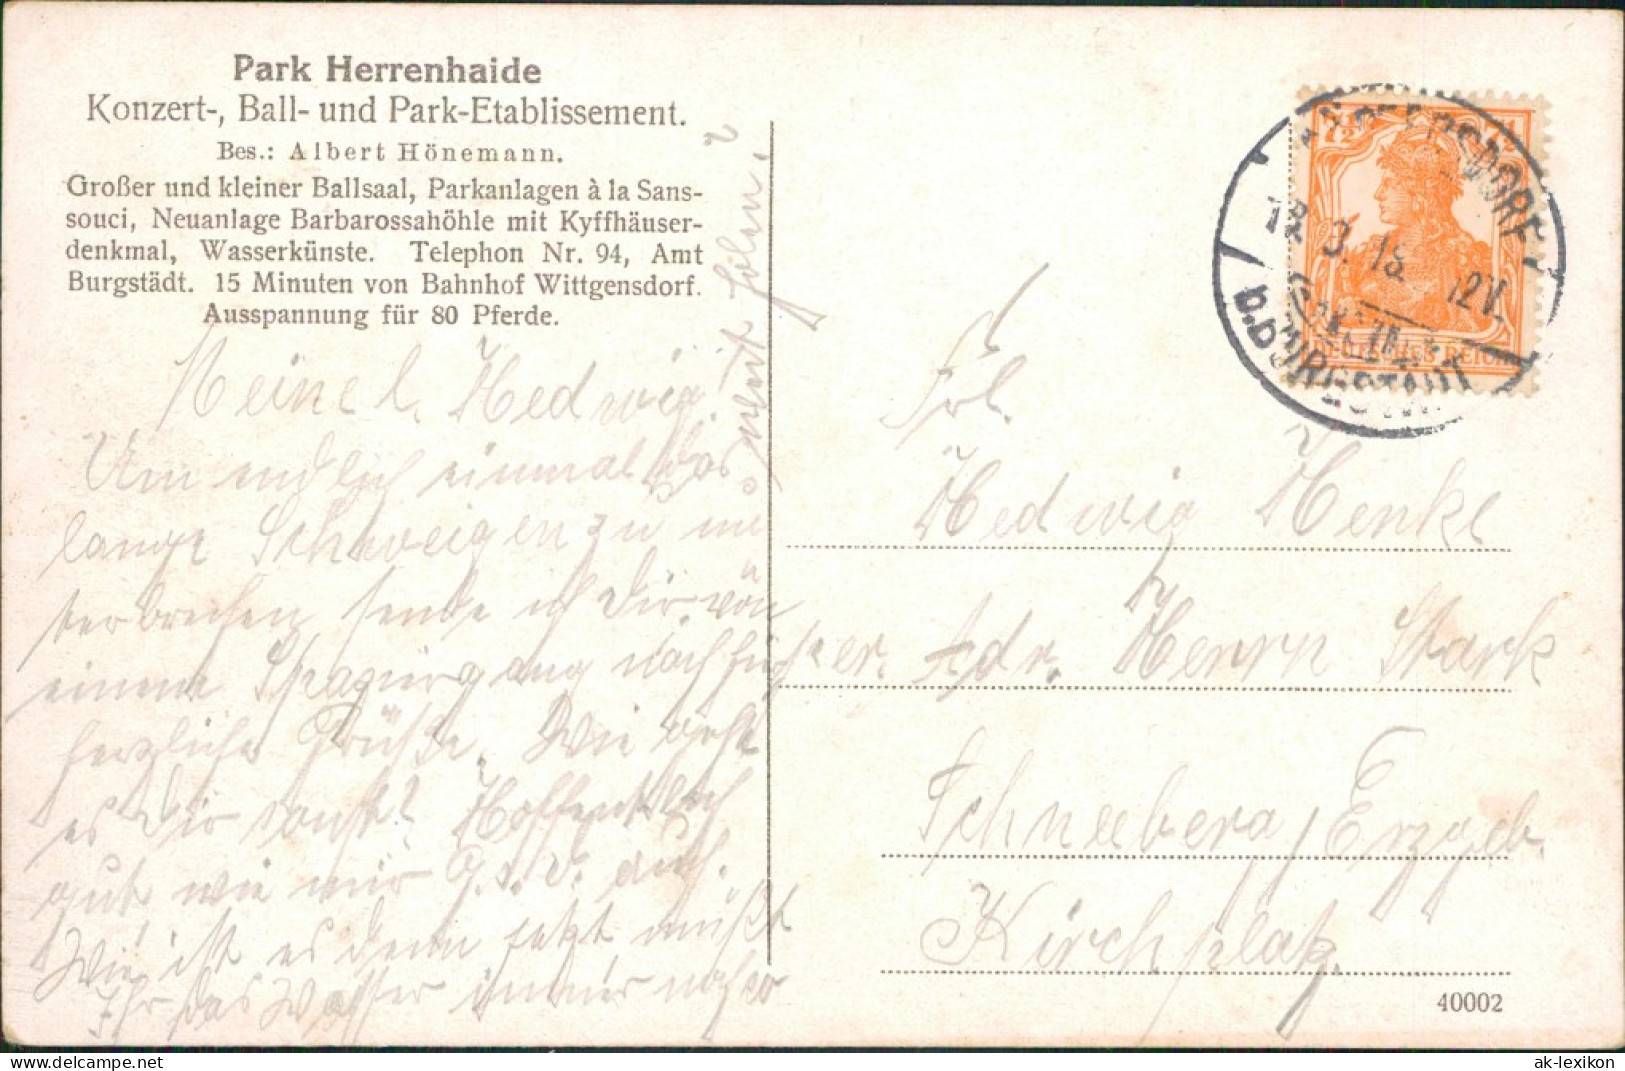 Park Herrenhaide
Konzert-, Ball- und Park-Etablissement.
Bes.: Albert Hönemann.
Großer und kleiner Ballsaal, Parkanlagen à la Sans-
souci, Neuanlage Barbarossahöhle mit Kyffhäuser-
denkmal, Wasserkünste. Telephon Nr. 94, Amt
Burgstädt. 15 Minuten von Bahnhof Wittgensdorf.
Ausspannung für 80 Pferde.
Meine l. Hedwig!
Um endlich einmal das
lange Schweigen zu un
terbrechen sende ich Dir von
einem Spaziergang nach hier
herzliche Grüße. Wie geht
es Dir sonst? Hoffentlich
gut wie mir G. s. D. auch.
Wie ist es denn jetzt müßt
Ihr das Wasser immer noch so
weit holen?
DEUTSCHES REICH
7½
18.3.18. 12V.
b. BURGSTÄDT
Frl.
Hedwig Henke
Adr. Herrn Stark
Schneeberg, Erzgeb.
Kirchplatz.
40002
delcampe.net
ak-lexikon